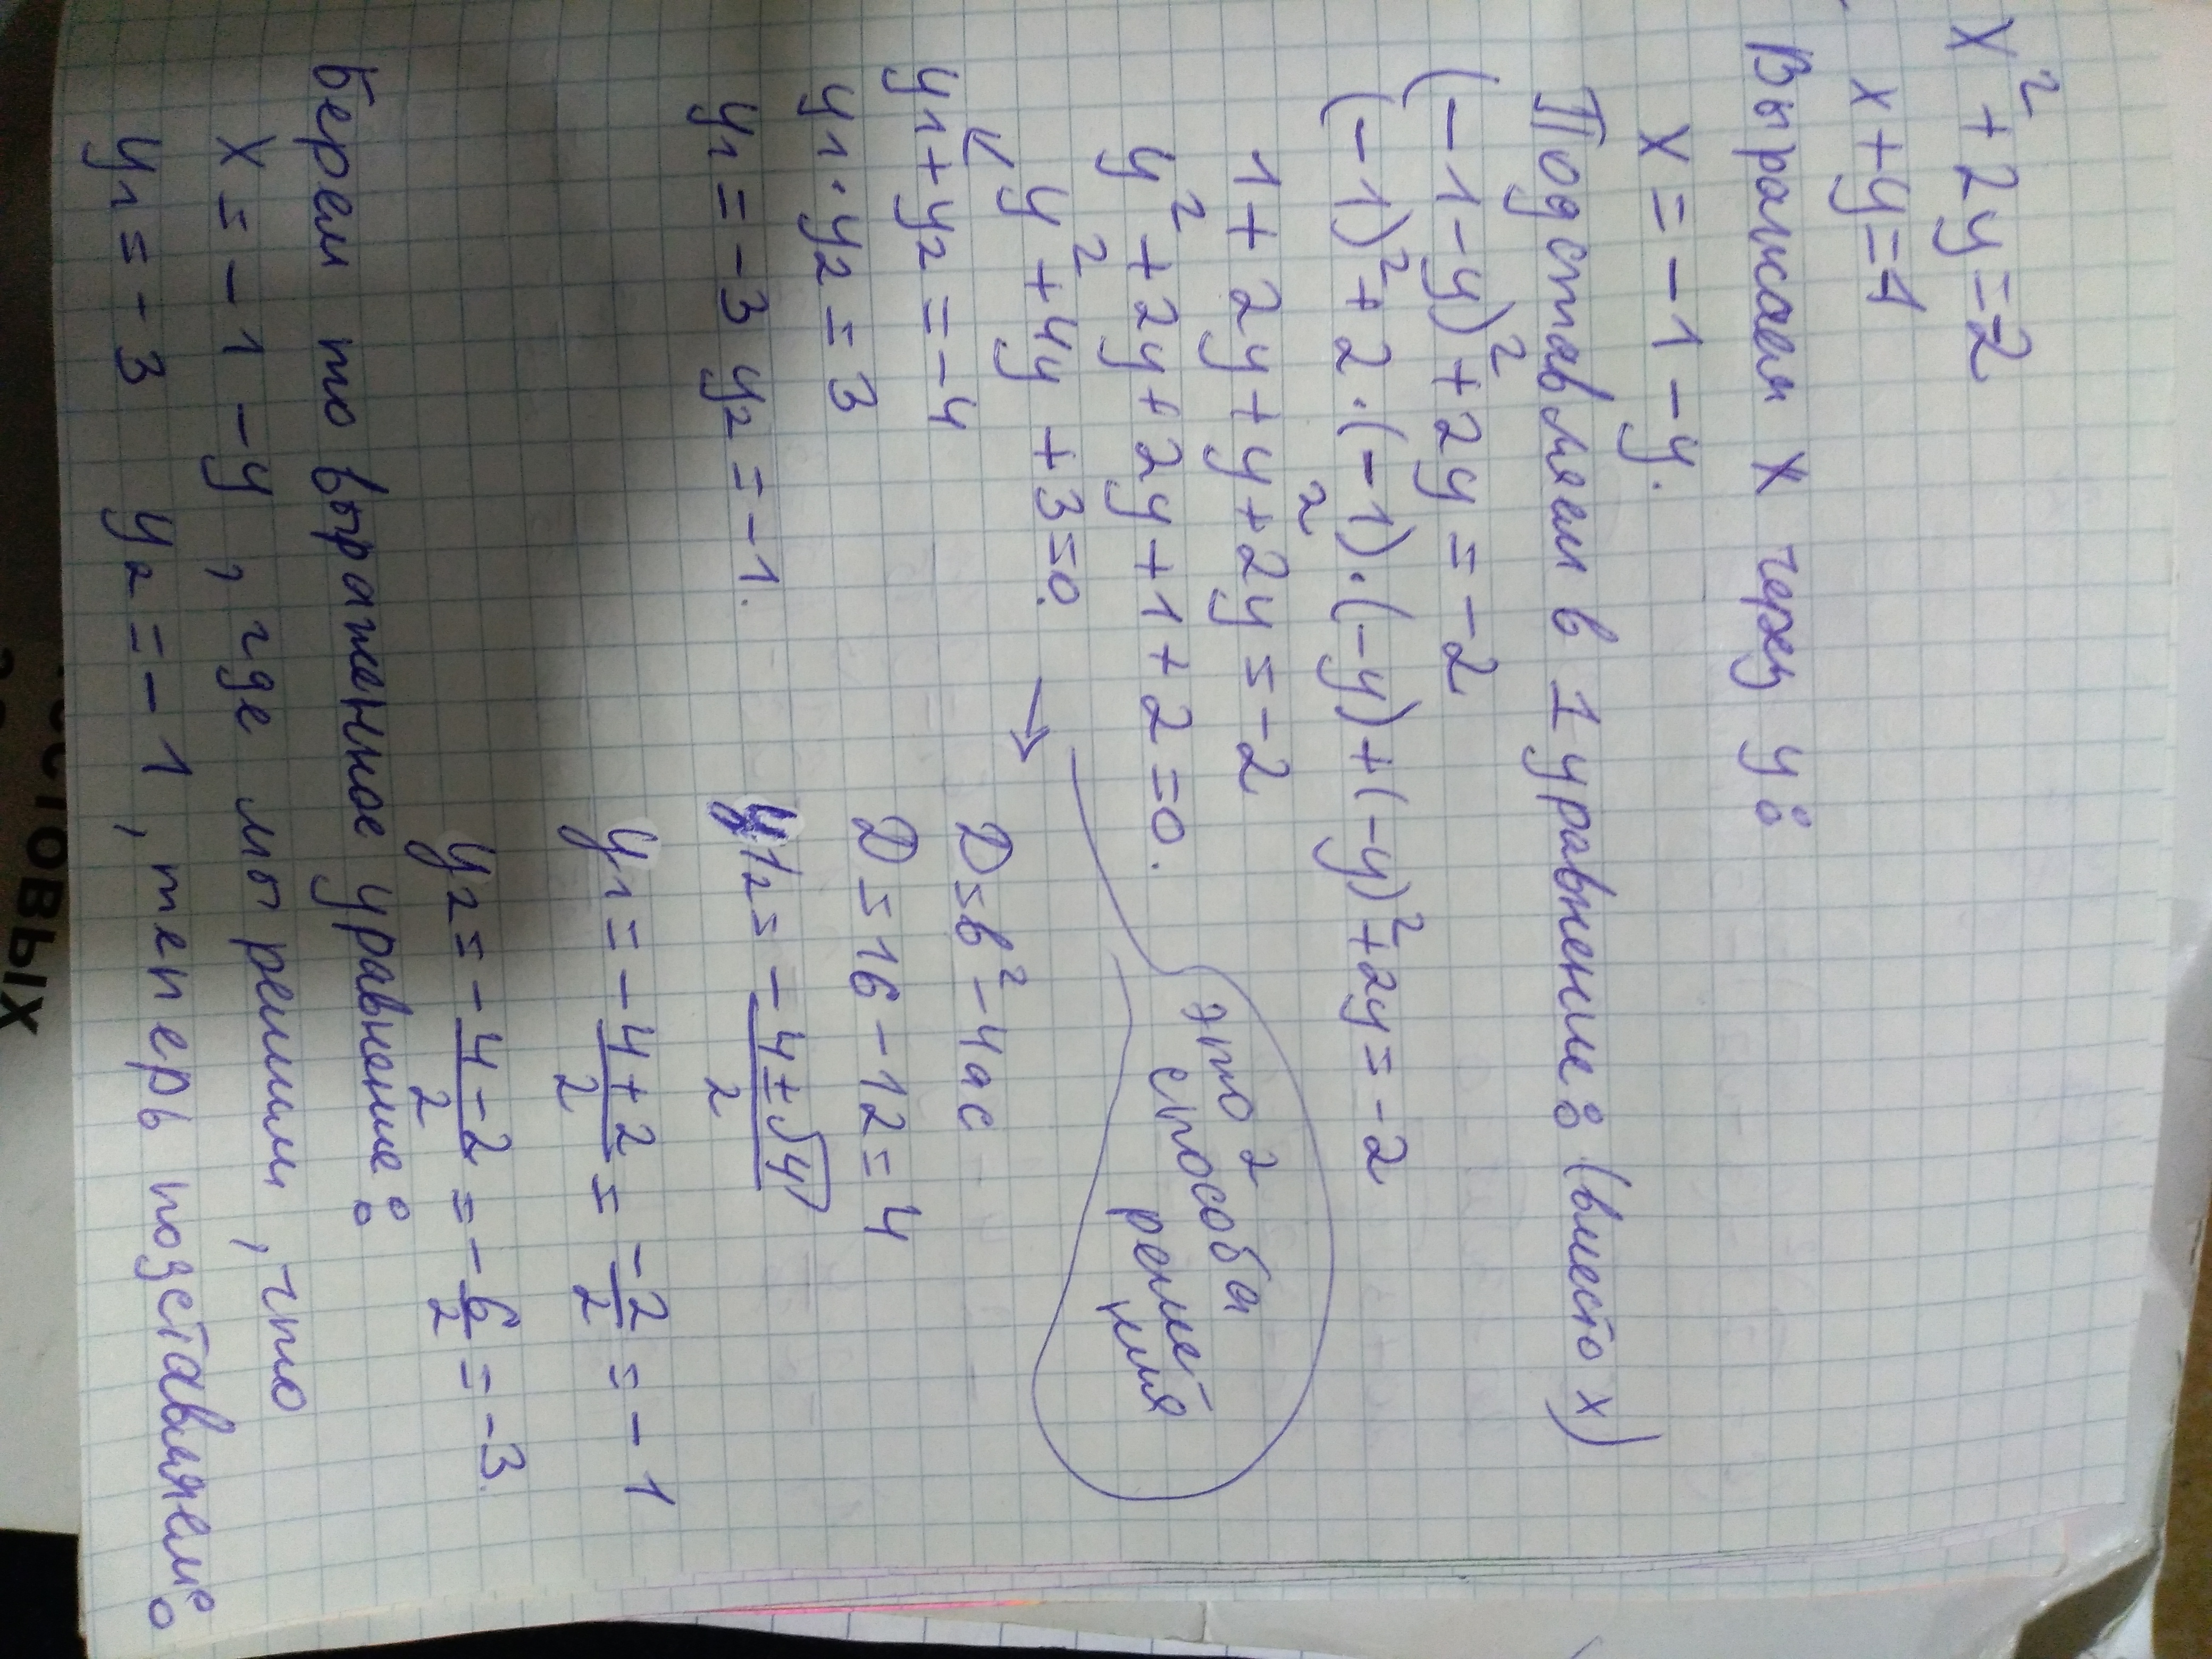 x² + 2y = -2
x + y = 1
Выражаем x через y:
x = -1 - y.
Подставляем в 1 уравнение: (вместо x)
(-1-y)² + 2y = -2
(-1)² + 2·(-1)·(-y) + (-y)² + 2y = -2
1 + 2y + y² + 2y = -2
y² + 2y + 2y + 1 + 2 = 0.
y² + 4y + 3 = 0.
это 2
способа
реше-
ния
y1 + y2 = -4
y1 · y2 = 3
y1 = -3 y2 = -1.
D = b² - 4ac
D = 16 - 12 = 4
y12 = -4±√4/2
y1 = -4+2/2 = -2/2 = -1
y2 = -4-2/2 = -6/2 = -3.
Берем то выраженное уравнение:
x = -1 - y, где мы решили, что
y1 = -3 y2 = -1, теперь подставляем:
ТЕСТОВЫХ